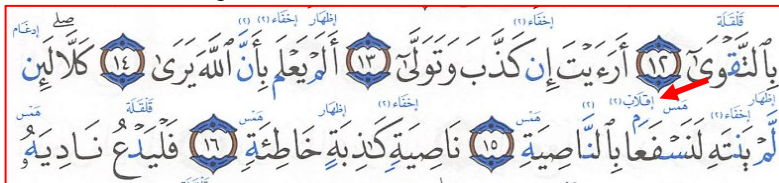 قَلْقَلَة إخفَاء (٢) إظهَار إخفَاء (٢) (٢) صلے إدغَام
بِٱلتَّقْوَىٰٓ ١٢ أَرَءَيْتَ إِن كَذَّبَ وَتَوَلَّىٰٓ ١٣ أَلَمْ يَعْلَم بِأَنَّ ٱللَّهَ يَرَىٰ ١٤ كَلَّا لَئِن
إظهَار إخفَاء (٢) هَمْس إقلَاب (٢) (٢) هَمْس إخفَاء (٢) إظهَار هَمْس قَلْقَلَة هَمْس
لَّمْ يَنتَهِ لَنَسْفَعًۢا بِٱلنَّاصِيَةِ ١٥ نَاصِيَةٍ كَـٰذِبَةٍ خَاطِئَةٍ ١٦ فَلْيَدْعُ نَادِيَهُۥ